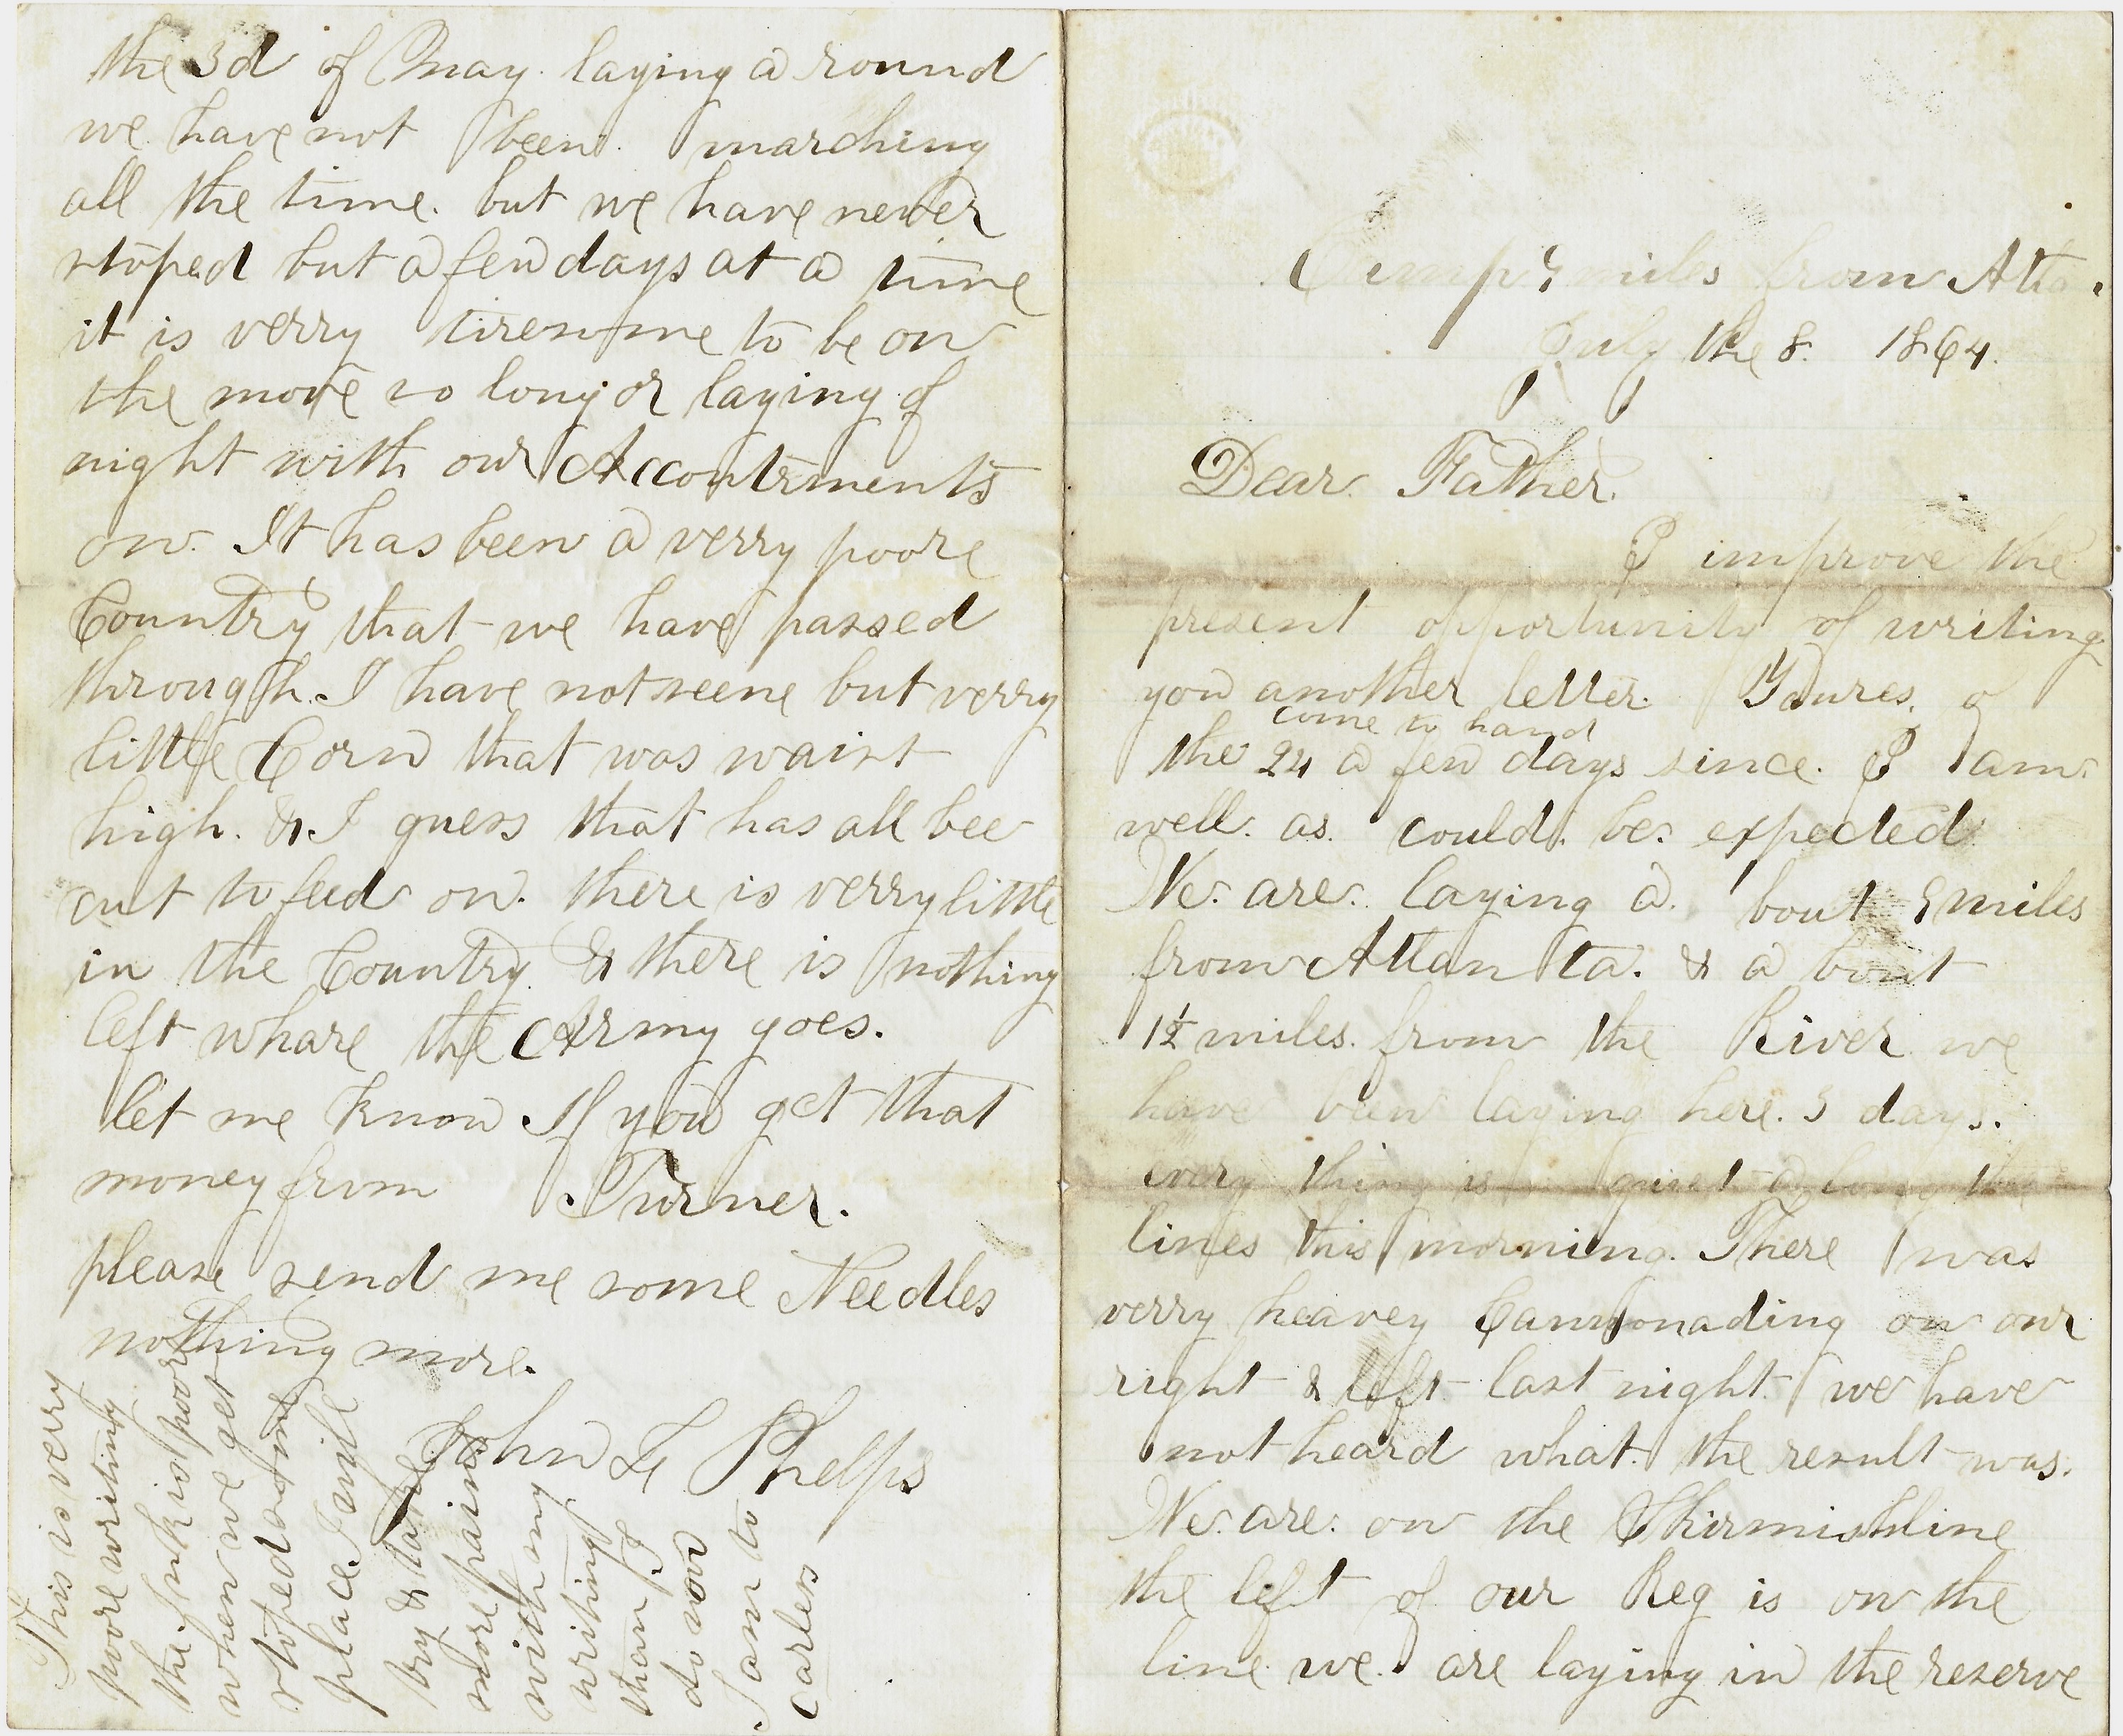 Camp 9 miles from Atta.
July the 8. 1864.
Dear Father.
I improve the
present opportunity of writing
you another letter. Youres of
come to hand
the 24 a few days since. I am
well. as could. be. expected
We. are. laying a. bout 9 miles
from Attan ta. & a bout
1½ miles. from the River we
have been laying here. 3 days.
every thing is quiet a long the
lines this morning. There was
verry heavey Cannonading on our
right & left last night. we have
not heard what. the result was.
We. are. on the Skirmishline
the left of our Reg is on the
line we. are laying in the reserve
the 3d of May. laying a round
we have not been. marching
all the time. but we have never
stoped but a few days at a time
it is verry tiresome to be on
the move so long or laying of
night with our Accontrments
on. It has been a verry poore
Country that we have passed
through. I have not seene but verry
little Corn that was waist
high. & I guess that has all bee
cut to feed on. there is verry little
in the Country. & there is nothing
left whare the Army goes.
let me know If you get that
money from Turner.
please send me some Needles
nothing more.
John F Phelps
This is verry
poore writing
the Ink is poor
when we get
stoped in one
place. I will
try & take
more pains
with my
writing
than I
do now
I am to
carless